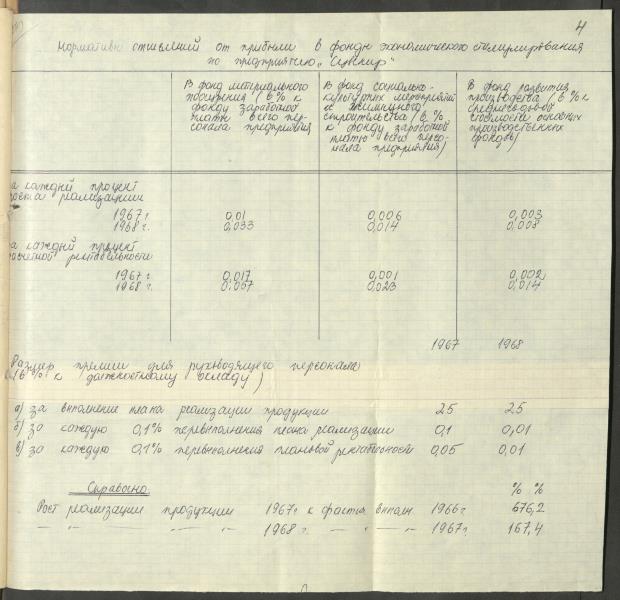 4
Нормативы отчислений от прибыли в фонды экономического стимулирования
по предприятию „Сувенир"
В фонд материального
поощрения (в % к
фонду заработной
платы всего пер-
сонала предприятия
В фонд социально-
культурных мероприятий
и жилищного
строительства (в %
к фонду заработной
платы всего персо-
нала предприятия)
В фонд развития
производства (в % к
среднегодовой
стоимости основных
производственных
фондов)
за каждый процент
роста реализации
1967 г. 0,01 0,006 0,003
1968 г. 0,033 0,014 0,008
за каждый процент
расчетной рентабельности
1967 г. 0,017 0,001 0,002
1968 г. 0,057 0,023 0,014
1967 1968
Размер премии для руководящего персонала
(в % к должностному окладу)
а) за выполнение плана реализации продукции 25 25
б) за каждую 0,1% перевыполнения плана реализации 0,1 0,01
в) за каждую 0,1% перевыполнения плановой рентабельности 0,05 0,01
Справочно: % %
Рост реализации продукции 1967 г к фактич выполн. 1966 г 676,2
— „ — — „ — 1968 г. — „ — „ — 1967 г. 167,4